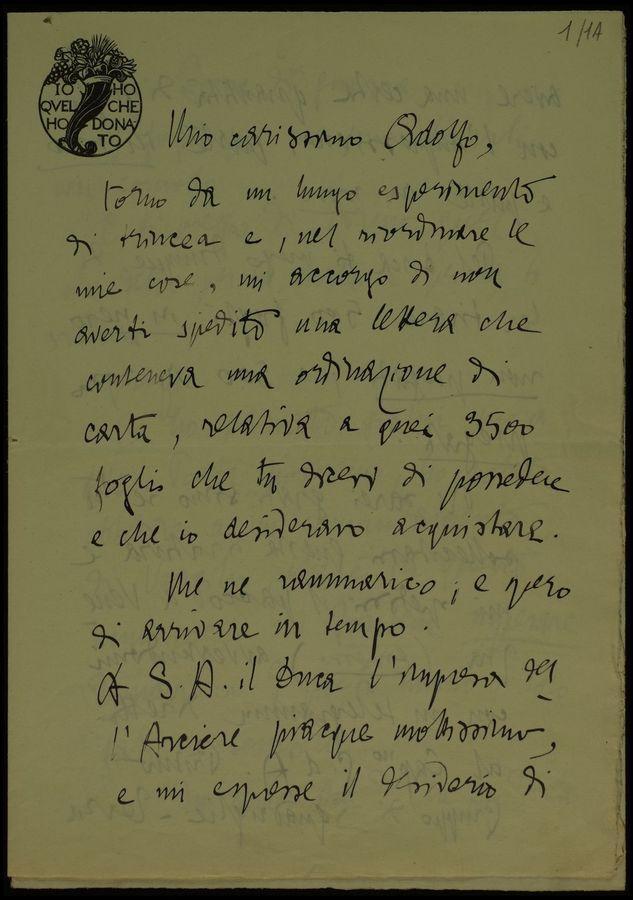 1/1A
IO HO
QUEL CHE
HO DONA
TO
Mio carissimo Adolfo,
torno da un lungo esperimento
di trincea e, nel riordinare le
mie cose, mi accorgo di non
averti spedito una lettera che
conteneva una ordinazione di
carta, relativa a quei 3500
foglis che tu dicevi di possedere
e che io desideravo acquistare.
Me ne rammarico; e spero
di arrivare in tempo.
A S.A. il Duca l'impresa del
l'Arciere piacque moltissimo,
e mi espresse il desiderio di